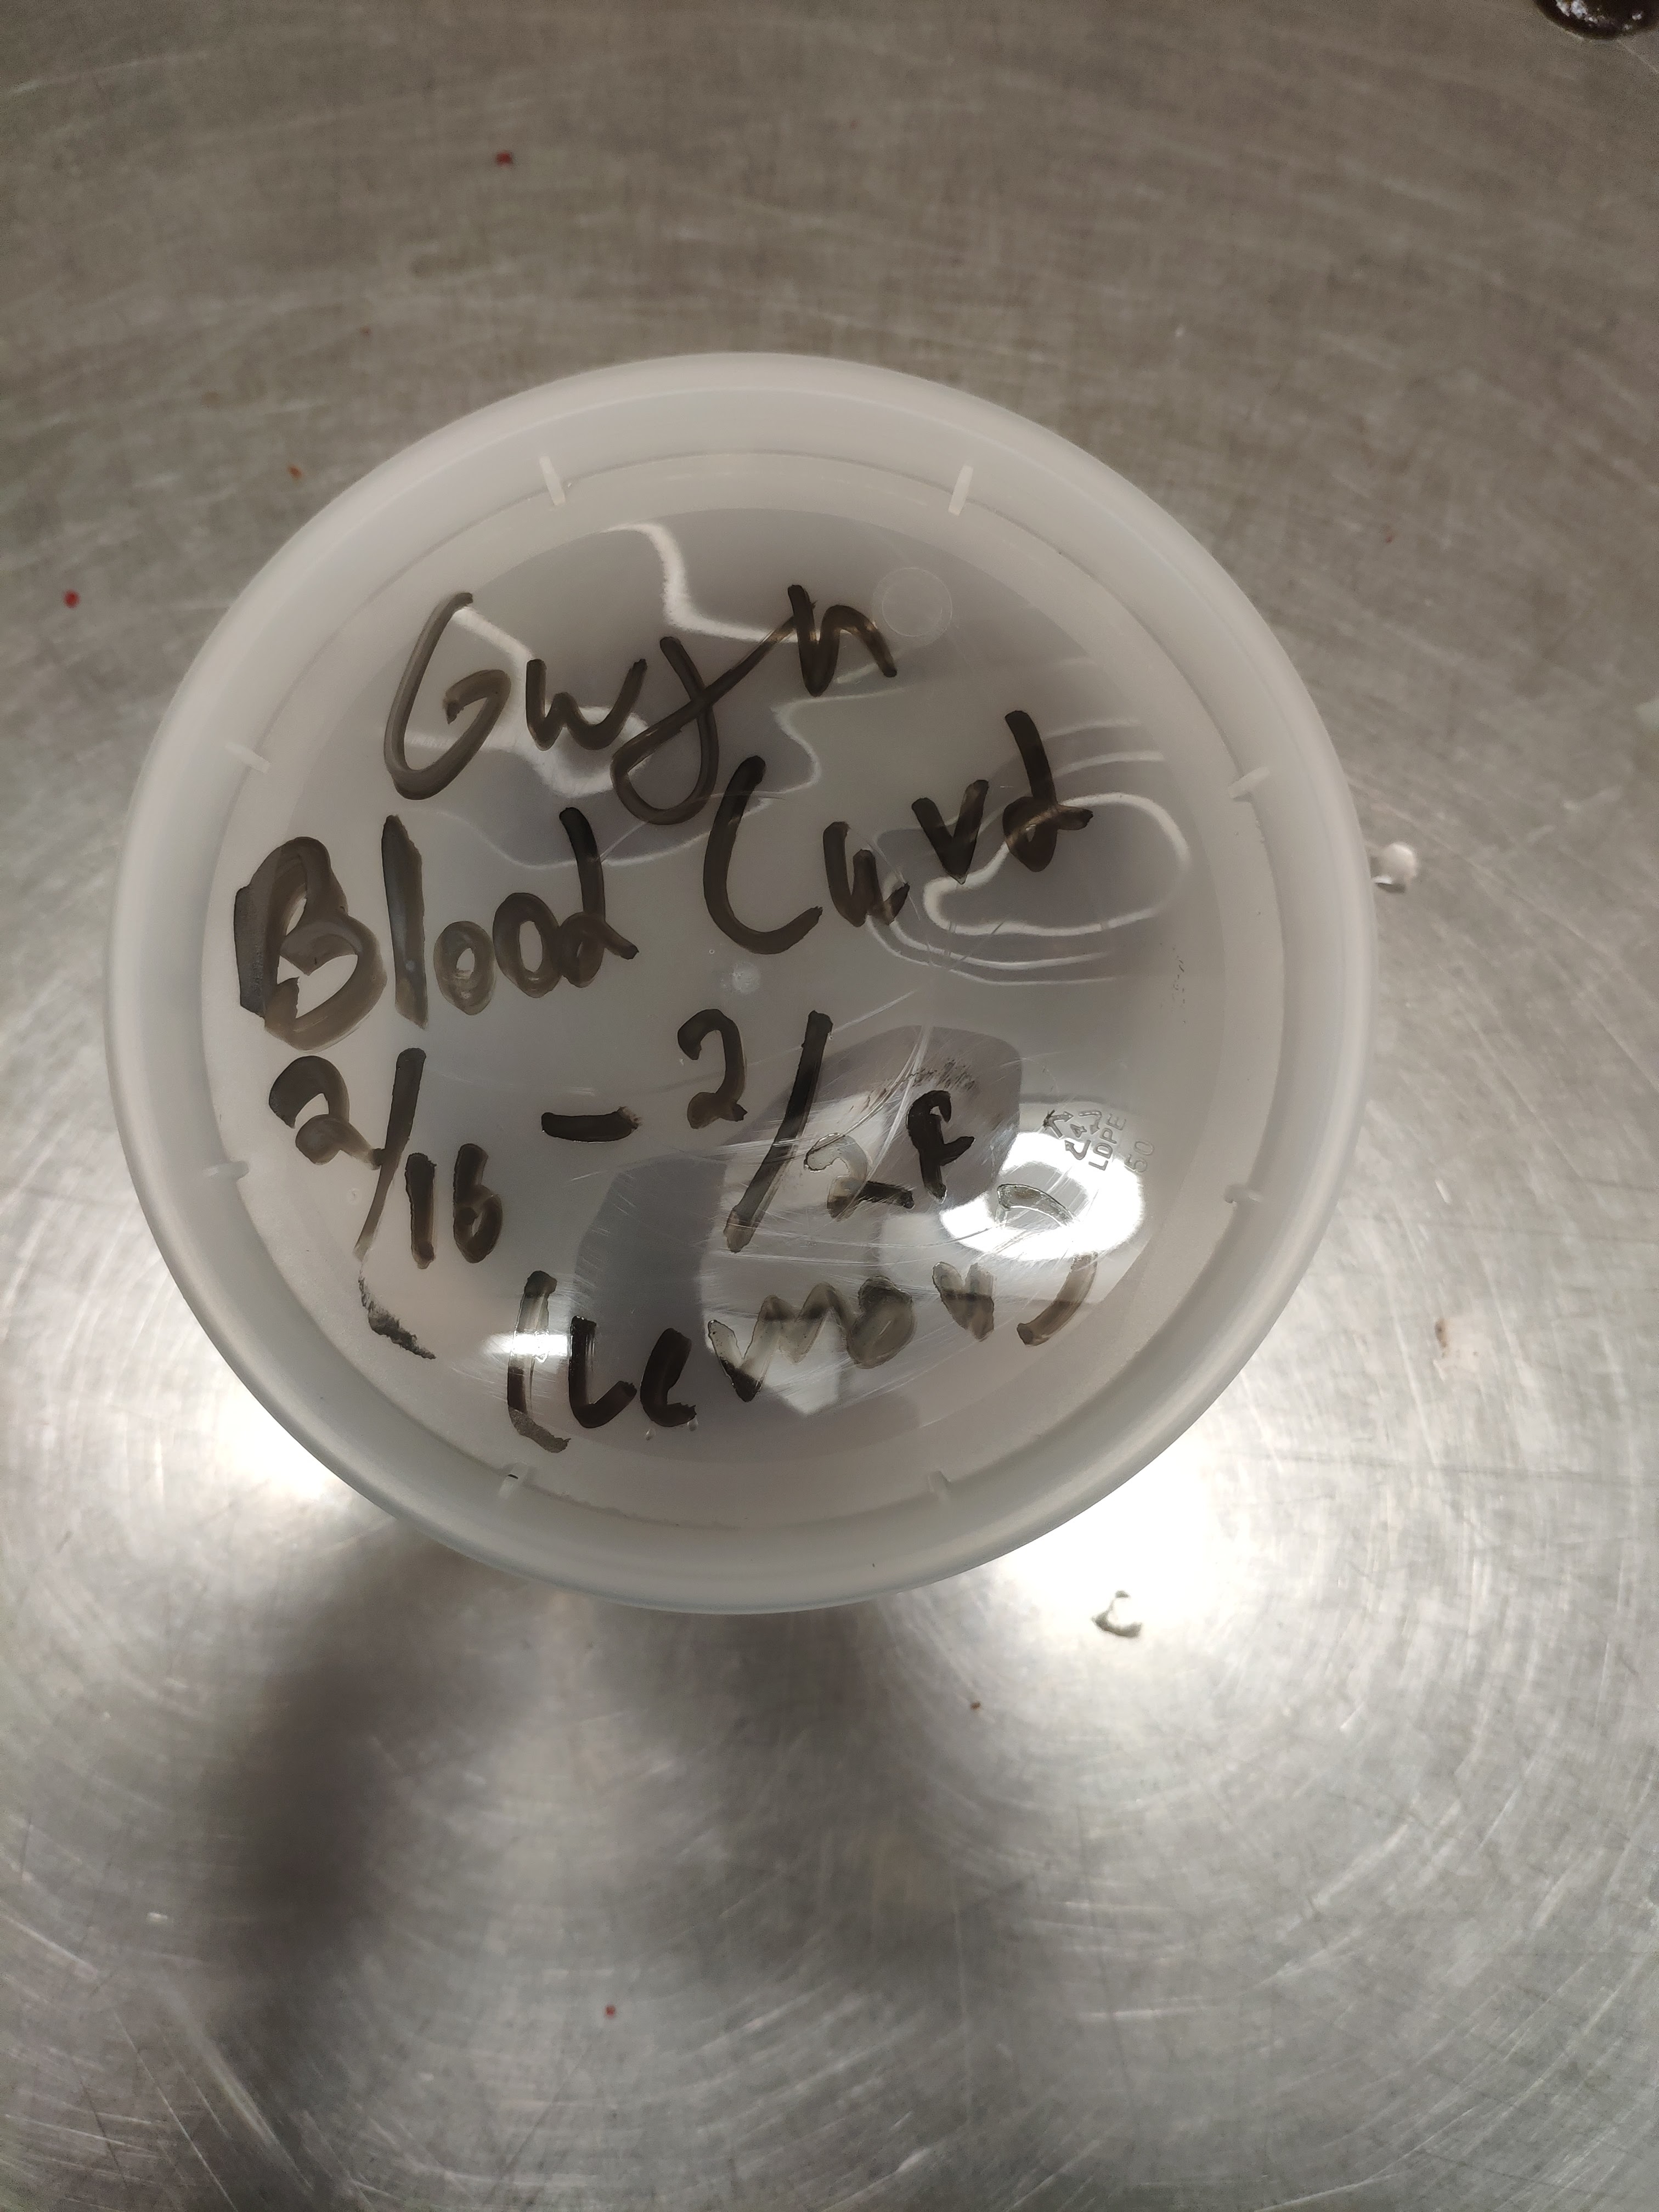 Gwyn
Blood Curd
2/16 - 2/28
(Lemon)
LDPE